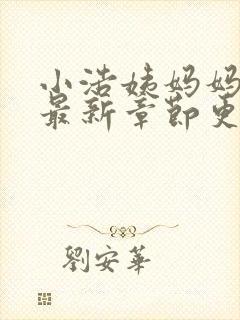 小浩姨妈妈
最新章节更
劉安華